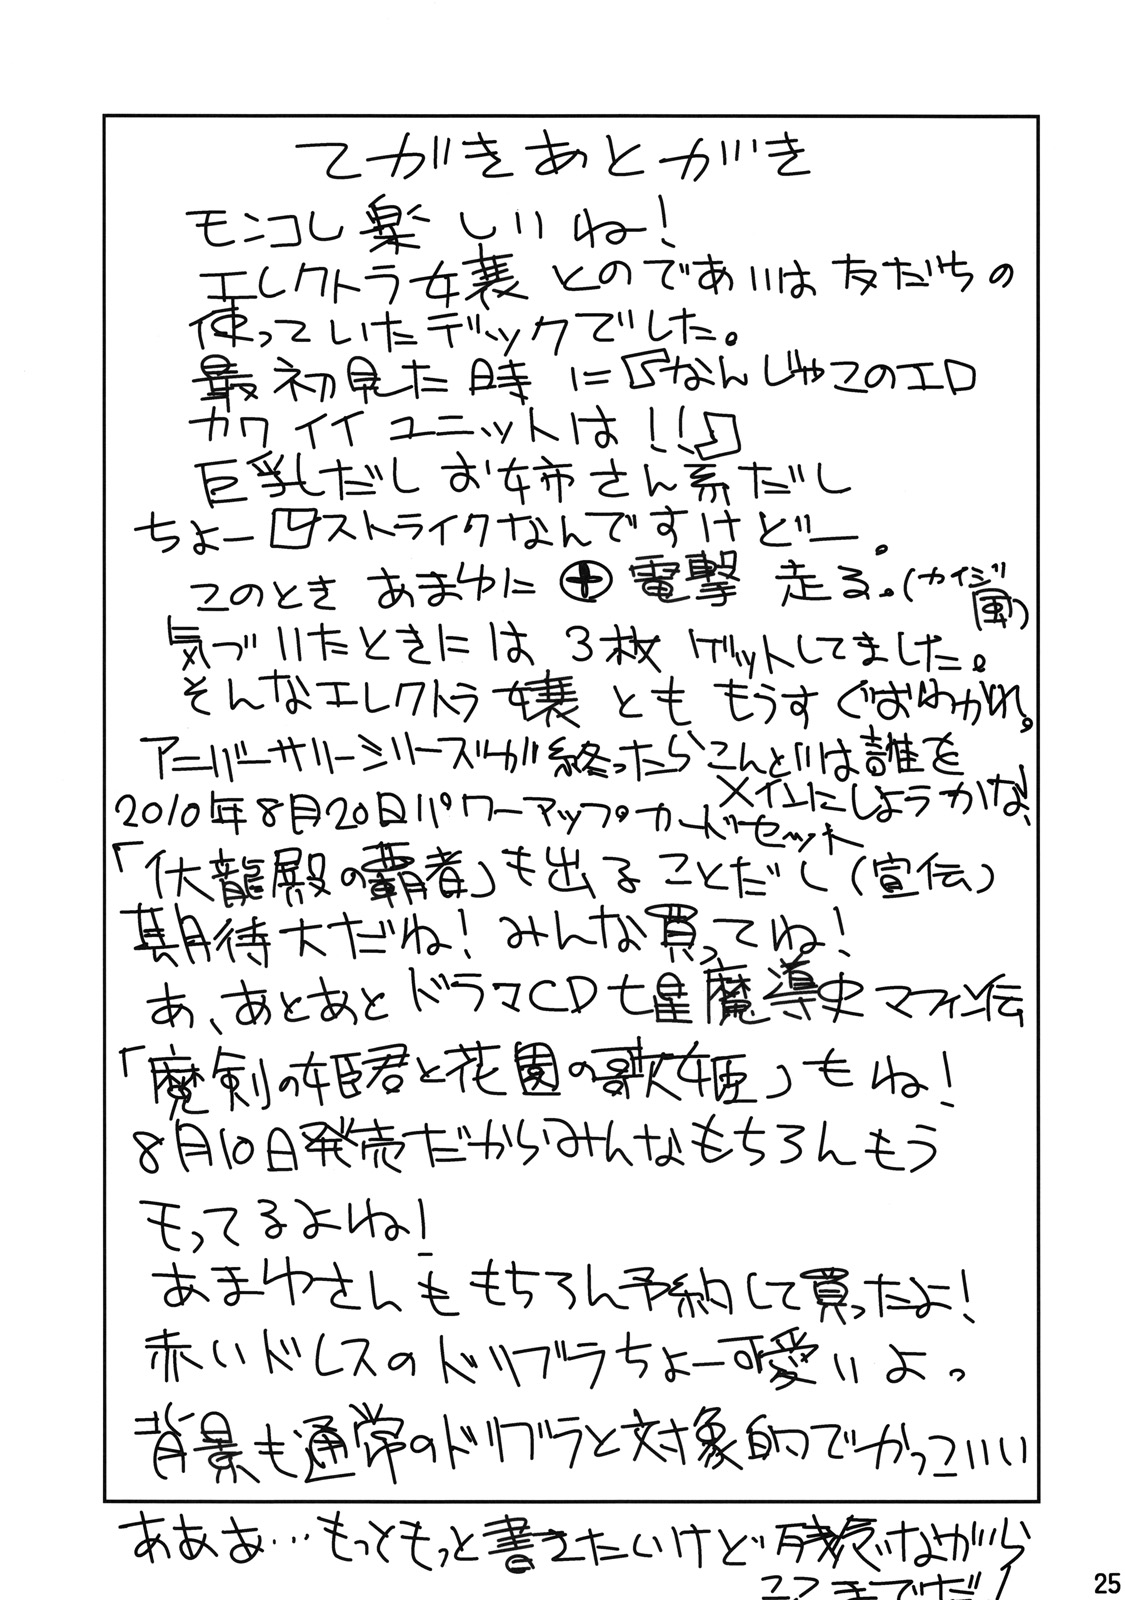 てがきあとがき
モンコレ楽しいね!
エレクトラ女襄とのであいは友だちの
使っていたデックでした。
最初見た時に『なんじゃこのエロ
カワイイユニットは!!』
巨乳だしお姉さん系だし
ちょーどストライクなんですけどー。
このときあまゆに 電撃走る。(カイジ風)
気づいたときには3枚ゲットしてました。
そんなエレクトラ嬢とももうすぐおわかれ。
アニバーサリーシリーズが終ったらこんどは誰を
メインにしようかな!
2010年8月20日パワーアップカードセット
「伏龍殿の覇者」も出ることだし(宣伝)
期待大だね!みんな買ってね!
あ、あとあとドラマCD七星魔導史マフィン伝
「魔剣の姫君と花園の歌姫」もね!
8月10日発売だからみんなもちろんもう
モってるよね!
あまゆさんももちろん予約して買ったよ!
赤いドレスのドリブラちょー可愛いよっ
背景も通常のドリブラと対象的でかっこいい
あああ…もっともっと書きたいけど残念ながら
ここまでだ!
25